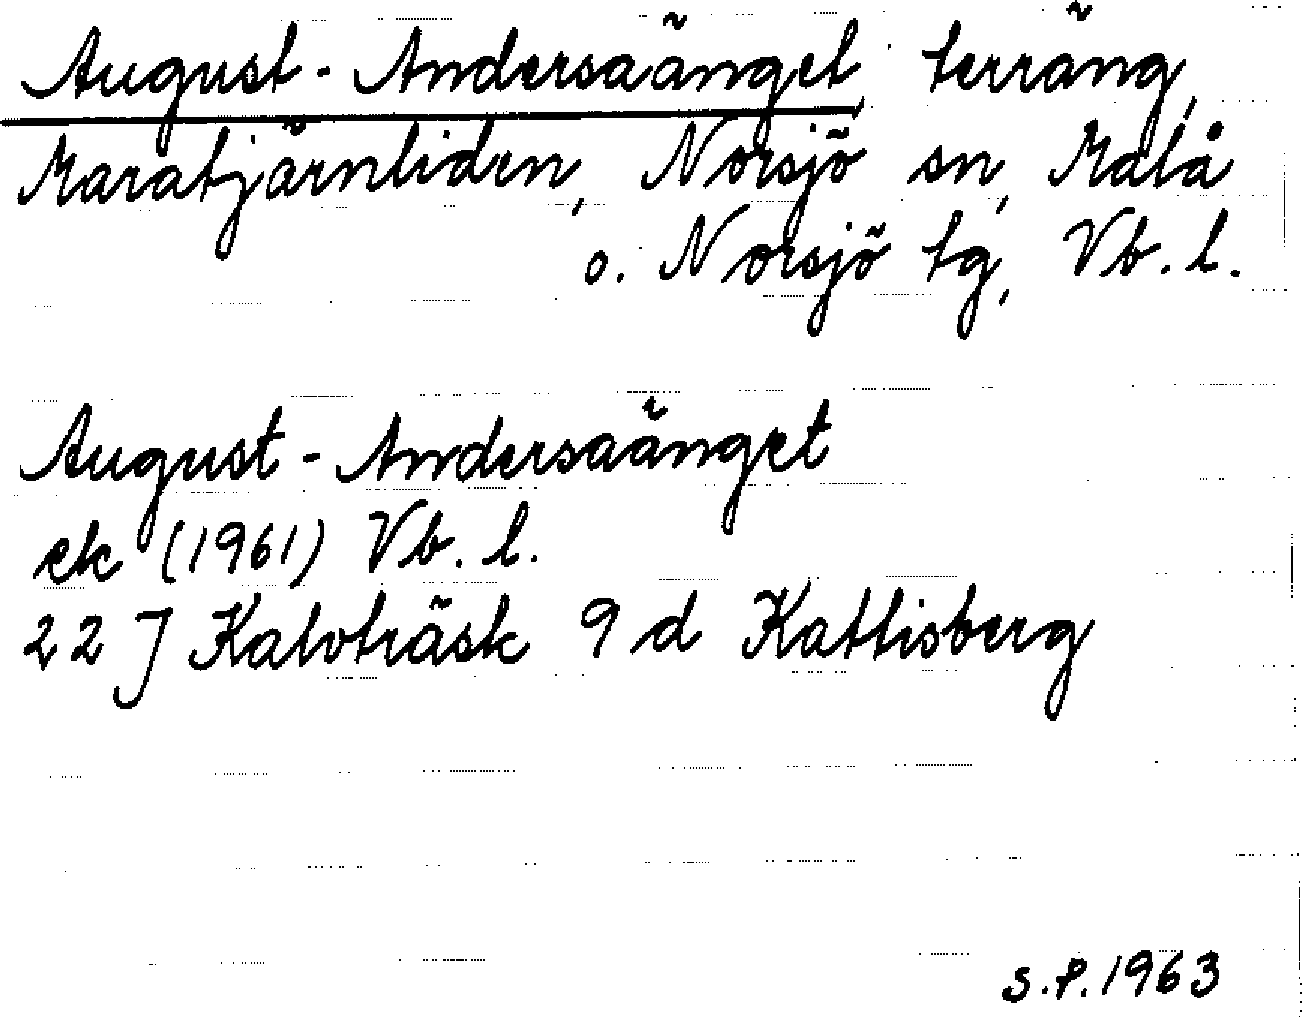 August-Andersaänget, terräng,
Maratjärnliden, Norsjö sn, Malå
o. Norsjö tg, Vb. l.
August-Andersaänget
ek (1961) Vb. l.
22 J Kalvträsk 9 d Kattisberg
S.P. 1963